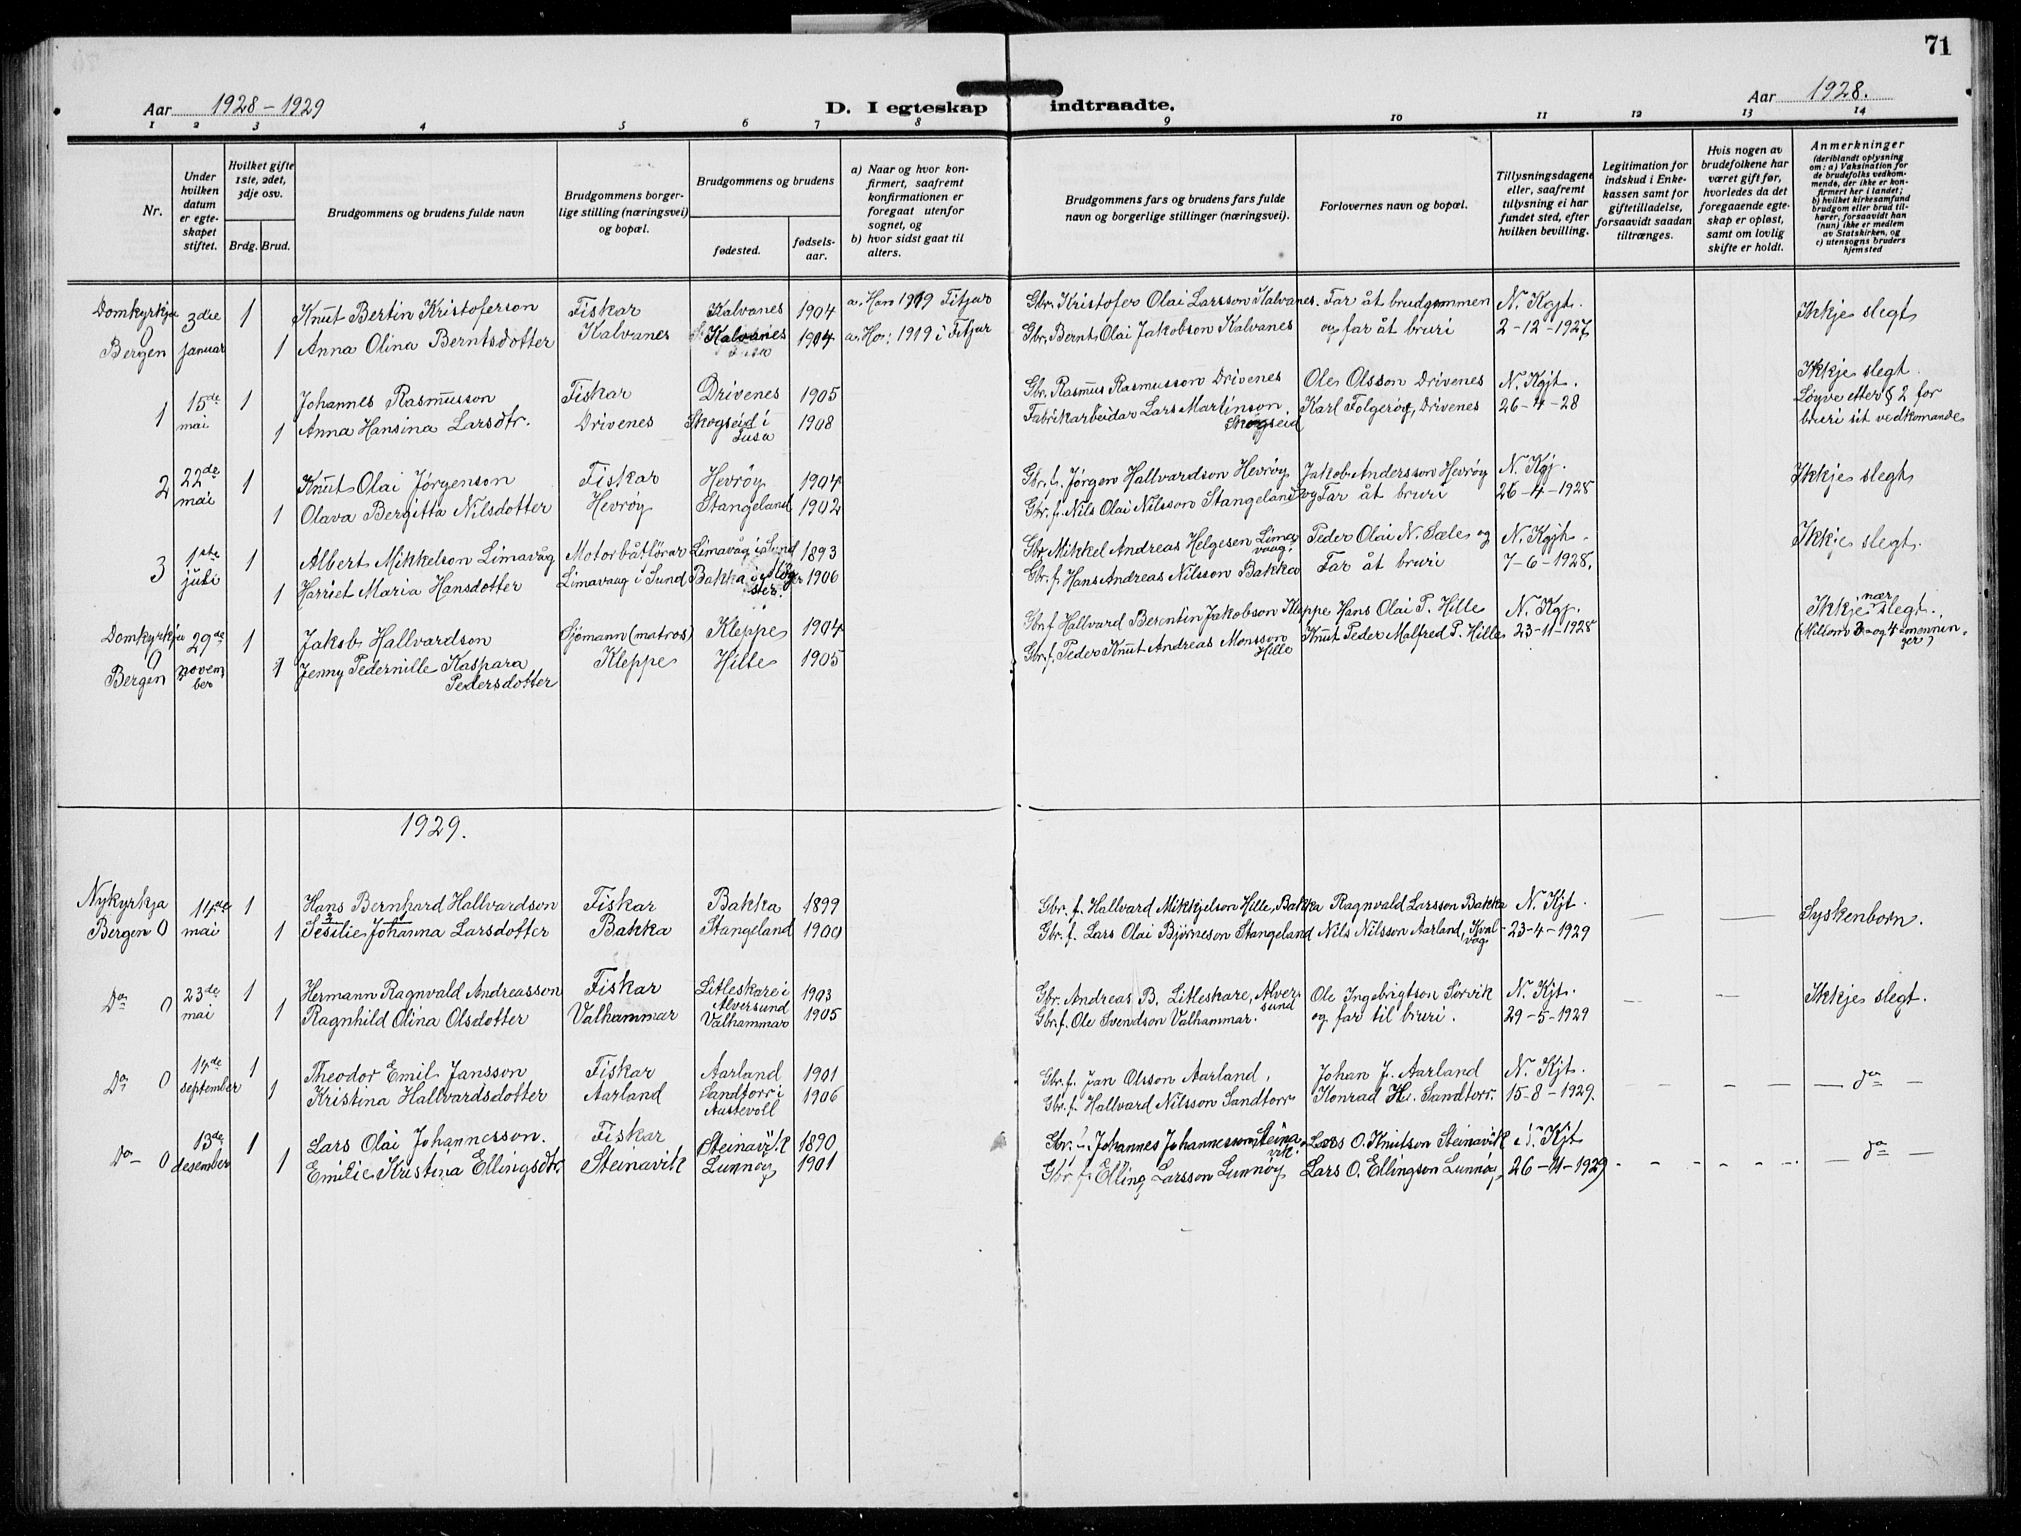 71
Aar 1928-1929
D. I egteskap indtraadte.
Aar 1928.
1 2 3 4 5 6 7 8 9 10 11 12 13 14
Nr.
Under hvilken datum er egteskapet stiftet.
Hvilket gifte 1ste, 2det, 3dje osv.
Brdg. Brud.
Brudgommens og brudens fulde navn
Brudgommens borgerlige stilling (næringsvei) og bopæl.
Brudgommens og brudens
fødested.
fødselsaar.
a) Naar og hvor konfirmert, saafremt konfirmationen er foregaat utenfor sognet, og
b) hvor sidst gaat til alters.
Brudgommens fars og brudens fars fulde navn og borgerlige stillinger (næringsvei).
Forlovernes navn og bopæl.
Tillysningsdagene eller, saafremt tillysning ei har fundet sted, efter hvilken bevilling.
Legitimation for indskud i Enkekassen samt for giftetilladelse, forsaavidt saadan tiltrænges.
Hvis nogen av brudefolkene har været gift før, hvorledes da det foregaaende egteskap er opløst, samt om lovlig skifte er holdt.
Anmerkninger
(deriblandt oplysning om: a) Vaksination for de brudefolks vedkommende, der ikke er konfirmert her i landet; b) hvilket kirkesamfund brudgom eller brud tilhører, forsaavidt han (hun) ikke er medlem av Statskirken, og c) utensogns bruders hjemsted
Domkyrkja 3die 1 Knut Bertin Kristoferson Fiskar Kalvanes 1904 a. Hor 1919 Fitjar Gbr. Kristofer Olai Larsson Kalvanes. Far åt brudgommen N. Kgjt. Ikkje slegt
0
Bergen januar 1 Anna Olina Berntsdotter Kalvanes Kalvanes 1904 a. Hor: 1919 i Fitjar Gbr. Bernt Olai Jakobson Kalvanes og far åt bruri 2-12-1927
1 15de mai 1 Johannes Rasmusson Fiskar Drivenes 1905 Gbr. Rasmus Rasmusson Drivenes Ole Olsson Drivenes N. Kgjt. Ikkje slegt.
1 Anna Hansina Larsdtr. Drivenes Skogseid i Fusa 1908 Fabrikarbeidar Lars Martinson Skogseid Karl Folgerøy, Drivenes 26-4-28 Løyve etter § 2 for bruri sit vedkomande
2 22de mai 1 Knut Olai Jørgenson Fiskar Hevrøy 1904 Gbr. f. Jørgen Hallvardson Hevrøy Jakob Andersson Hevrøy N. Kgj. Ikkje slegt
1 Olava Bergitta Nilsdotter Hevrøy Stangeland 1902 Gbr. f. Nils Olai Nilsson Stangeland og Far åt bruri 26-4-1928
3 1ste juli 1 Albert Mikkelson Limavåg Motorbåtførar Limavåg i Sund 1893 Gbr. Mikkel Andreas Helgesen Limavaag. Peder Olai N. Sæle og N. Kgjt. Ikkje slegt.
1 Harriet Maria Hansdotter Limavaag i Sund Bakka i Møgster. 1906 Gbr. f. Hans Andreas Nilsson Bakka Far åt bruri 7-6-1928.
Domkyrkja 29de 1 Jakob Hallvardson Sjømann (matros) Kleppe 1904 Gbr. f. Hallvard Berentin Jakobson Kleppe Hans Olai P. Hille N. Kgj. Ikkje nær slegt.
0
Bergen november 1 Jenny Pedernille Kaspara Pedersdotter Kleppe Hille 1905 Gbr. f. Peder Knut Andreas Monsson Hille Knut Peder Malfred P. Hille 23-11-1928 (Millom 3 og 4 menninger)
1929.
Nykyrkja 14de 1 Hans Bernhard Hallvardson Fiskar Bakka 1899 Gbr. f. Hallvard Mikkjelson Hille, Bakka Ragnvald Larsson Bakka N. Kjt. — — Syskenborn.
Bergen 0 mai 1 Sesilie Johanna Larsdotter Bakka Stangeland 1900 Gbr. f. Lars Olai Bjørneson Stangeland Nils Nilsson Aarland, Kvalvåg 23-4-1929
Do 0 23de mai 1 Hermann Ragnvald Andreasson Fiskar Litleskare i Alversund 1903 Gbr. Andreas B. Litleskare, Alversund Ole Ingebrigtson Sørvik N. Kjt. — — Ikkje slegt.
1 Ragnhild Olina Olsdotter Valhammar Valhammar 1905 Gbr. f. Ole Svendson Valhammar. og far til bruri. 29-5-1929
Do 0 14de september 1 Theodor Emil Jansson Fiskar Aarland 1901 Gbr. f. Jan Olsson Aarland, Johan J. Aarland N. Kjt. — — — do —
1 Kristina Hallvardsdotter Aarland Sandtorv i Austevoll 1906 Gbr. f. Hallvard Nilsson Sandtorv Konrad H. Sandtorv. 15-8-1929.
Do 0 13de desember 1 Lars Olai Johannesson. Fiskar Steinavik 1890 Gbr. f. Johannes Johannesson Steinavik. Lars O. Knutson Steinavik N. Kjt — do —
1 Emilie Kristina Ellingsdtr. Steinavik Lunnøy 1901 Gbr. f. Elling Larsson Lunnøy Lars O. Ellingson Lunnøy 26-11-1929